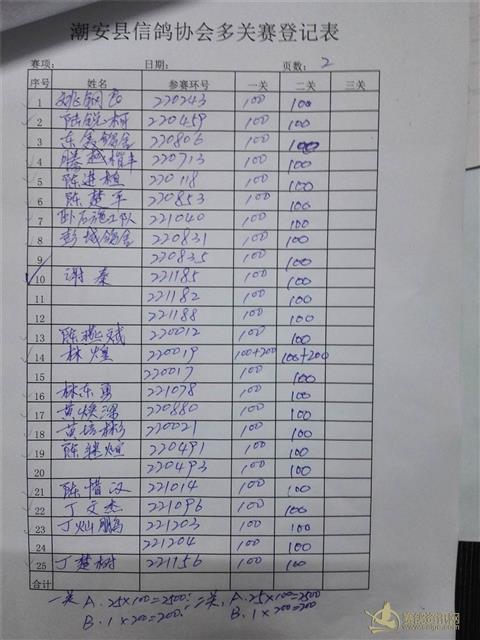 潮安县信鸽协会多关赛登记表
赛项: 日期: 页数: 2
序号 姓名 参赛环号 一关 二关 三关
1 姚钢 220243 100 100
2 陆锐树 220459 100 100
3 东金鸽舍 220806 100 100
4 腾越 220713 100 100
5 陈进植 220118 100 100
6 陈楚平 220853 100 100
7 卧石施工队 221040 100 100
8 彭城鸽舍 220831 100 100
9 220835 100 100
10 谢秦 221185 100 100
11 221182 100 100
12 221188 100 100
13 陈燕斌 220012 100 100
14 林煌 220019 100+200 100+200
15 220017 100 100
16 林东勇 221078 100 100
17 黄焕深 220880 100 100
18 黄培彬 220021 100 100
19 陈继煊 220491 100 100
20 220493 100 100
21 陈惜汉 221014 100 100
22 丁文杰 221096 100 100
23 丁灿鹏 221203 100 100
24 221204 100 100
25 丁楚树 221156 100 100
合计
一关 A. 25×100=2500; 二关, A. 25×100=2500
B. 1×200=200; B. 1×200=200